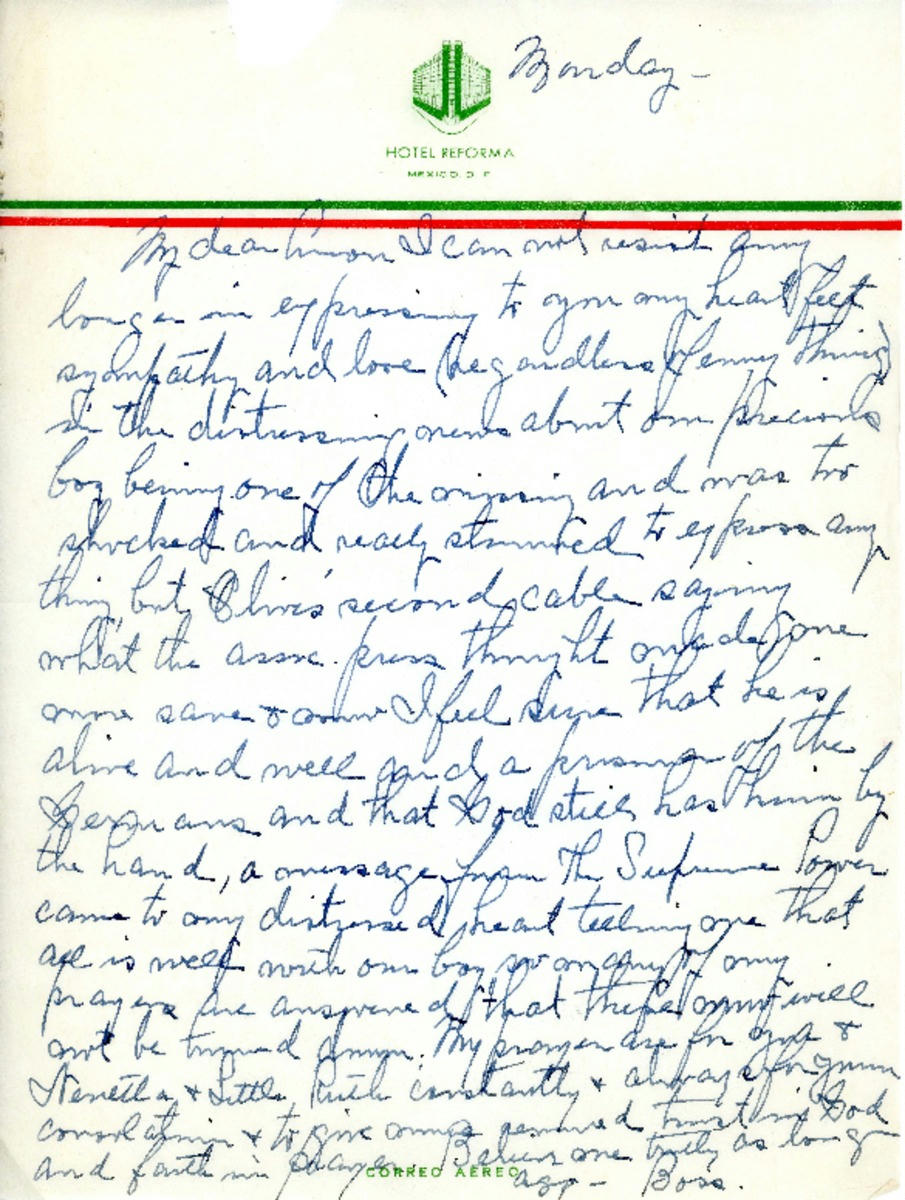 Monday -
HOTEL REFORMA
MEXICO, D. F.
My dear Amon I can not resist any
longer in expressing to you my heart felt
sympathy and love (regardless of enny thing)
in the distressing news about our precious
boy being one of the missing and was too
shocked and really stunned to express any
thing, but Olive's second cable saying
what the asso. press thought made me
more sane & now I feel sure that he is
alive and well and a prisoner of the
Germans and that God still has him by
the hand, a message from The Supreme Power
came to my distressed heart telling me that
all is well with our boy so many of my
prayers are answered that these must will
not be turned down. My prayers are for you &
Nenetta & Little Ruth constantly & always for your
consolation & to give renewed trust in God
and faith in prayer. Believe me truly as long
ago - Boss.
CORREO AEREO